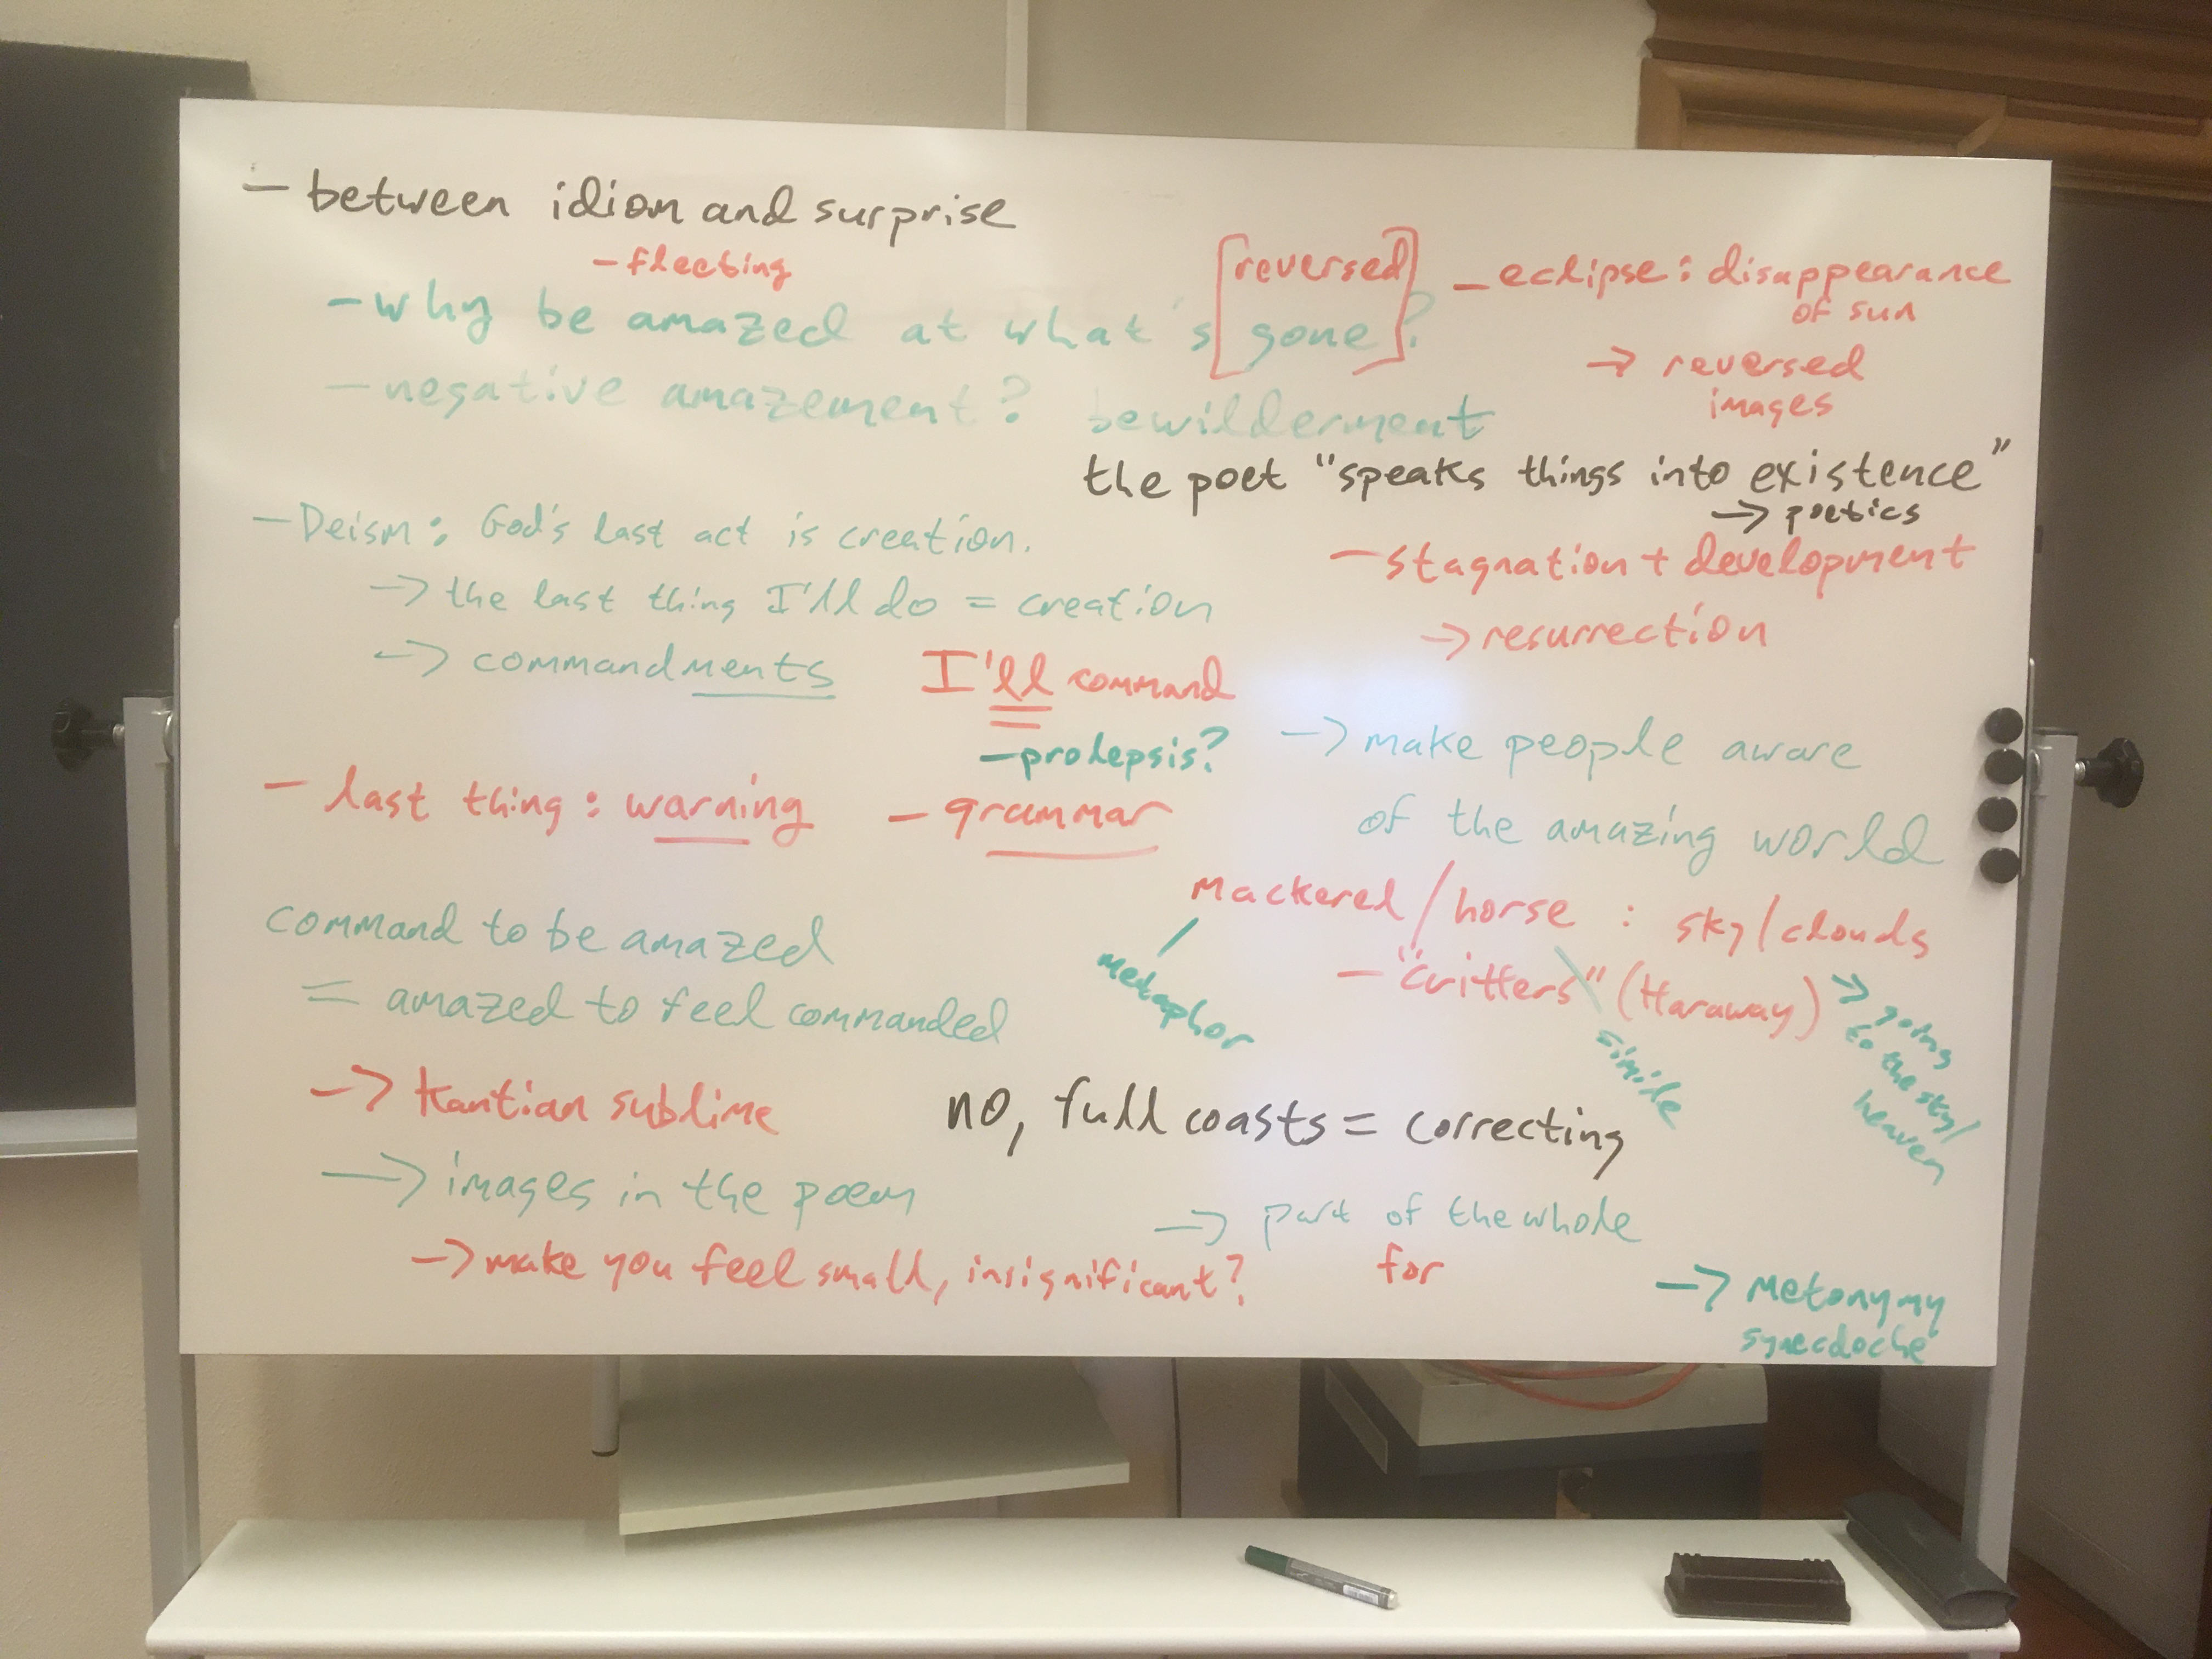 - between idiom and surprise
- fleeting
- why be amazed at what's [gone]?
[reversed]
- negative amazement? bewilderment
- eclipse: disappearance
of sun
→ reversed
images
the poet "speaks things into existence"
→ poetics
- Deism: God's last act is creation.
→ the last thing I'll do = creation
→ commandments
I'll command
- prolepsis?
- stagnation + development
→ resurrection
→ make people aware
of the amazing world
- last thing: warning
- grammar
mackerel/horse : sky/clouds
metaphor
- "critters" (Haraway)
simile
→ going
to the sky/
heaven
command to be amazed
= amazed to feel commanded
→ Kantian sublime
→ images in the poem
→ make you feel small, insignificant?
no, full coasts = correcting
→ part of the whole
for
→ metonymy
synecdoche